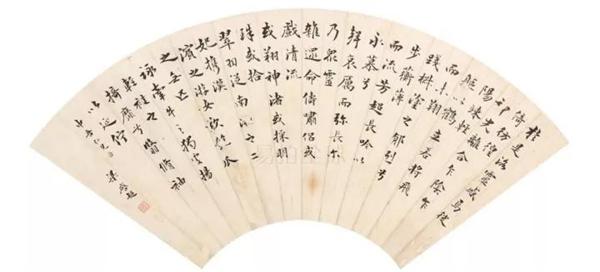 於是洛靈感焉徙
倚彷徨
神光離合乍陰乍
陽竦輕軀
以鶴立若將飛
而未翔
踐椒塗之郁烈兮
步蘅薄
而流芳超長吟以
永慕兮
聲哀厲而彌長爾
乃眾靈
雜遝命儔嘯侶或
戲清流
或翔神渚或採明
珠或拾
翠羽從南湘之二
妃攜漢
濱之游女歎匏瓜
之無匹兮
詠牽牛之獨處揚
輕袿之猗靡兮翳修袖
以延佇
梁啟超